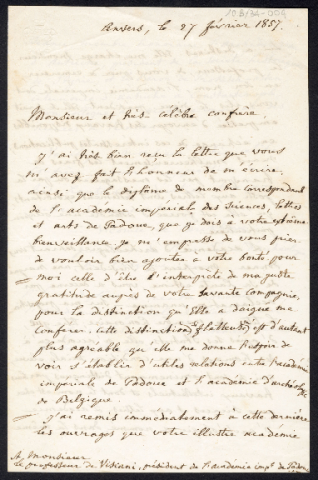 Anvers, le 27 février 1857.
Monsieur et très célèbre confrère
j'ai très bien reçu la lettre que vous
m'avez fait l'honneur de m'écrire,
ainsi que le diplome de membre correspondant
de l'académie impériale des sciences, lettres
et arts de Padoue, que je dois à votre extrême
bienveillance. je m'empresse de vous prier
de vouloir bien ajouter à votre bonté pour
moi celle d'être l'interprète de ma juste
gratitude auprès de votre savante compagnie,
pour la distinction qu'Elle a daigné me
conférer. Cette distinction flatteuse est d'autant
plus agréable qu'elle me donne l'espoir de
voir s'établir d'utiles relations entre l'académie
impériale de Padoue et l'académie d'archéologie
de Belgique.
j'ai remis immédiatement à cette dernière
les ouvrages que votre illustre académie
A Monsieur
le professeur de Visiani, président de l'académie imp. de Padoue